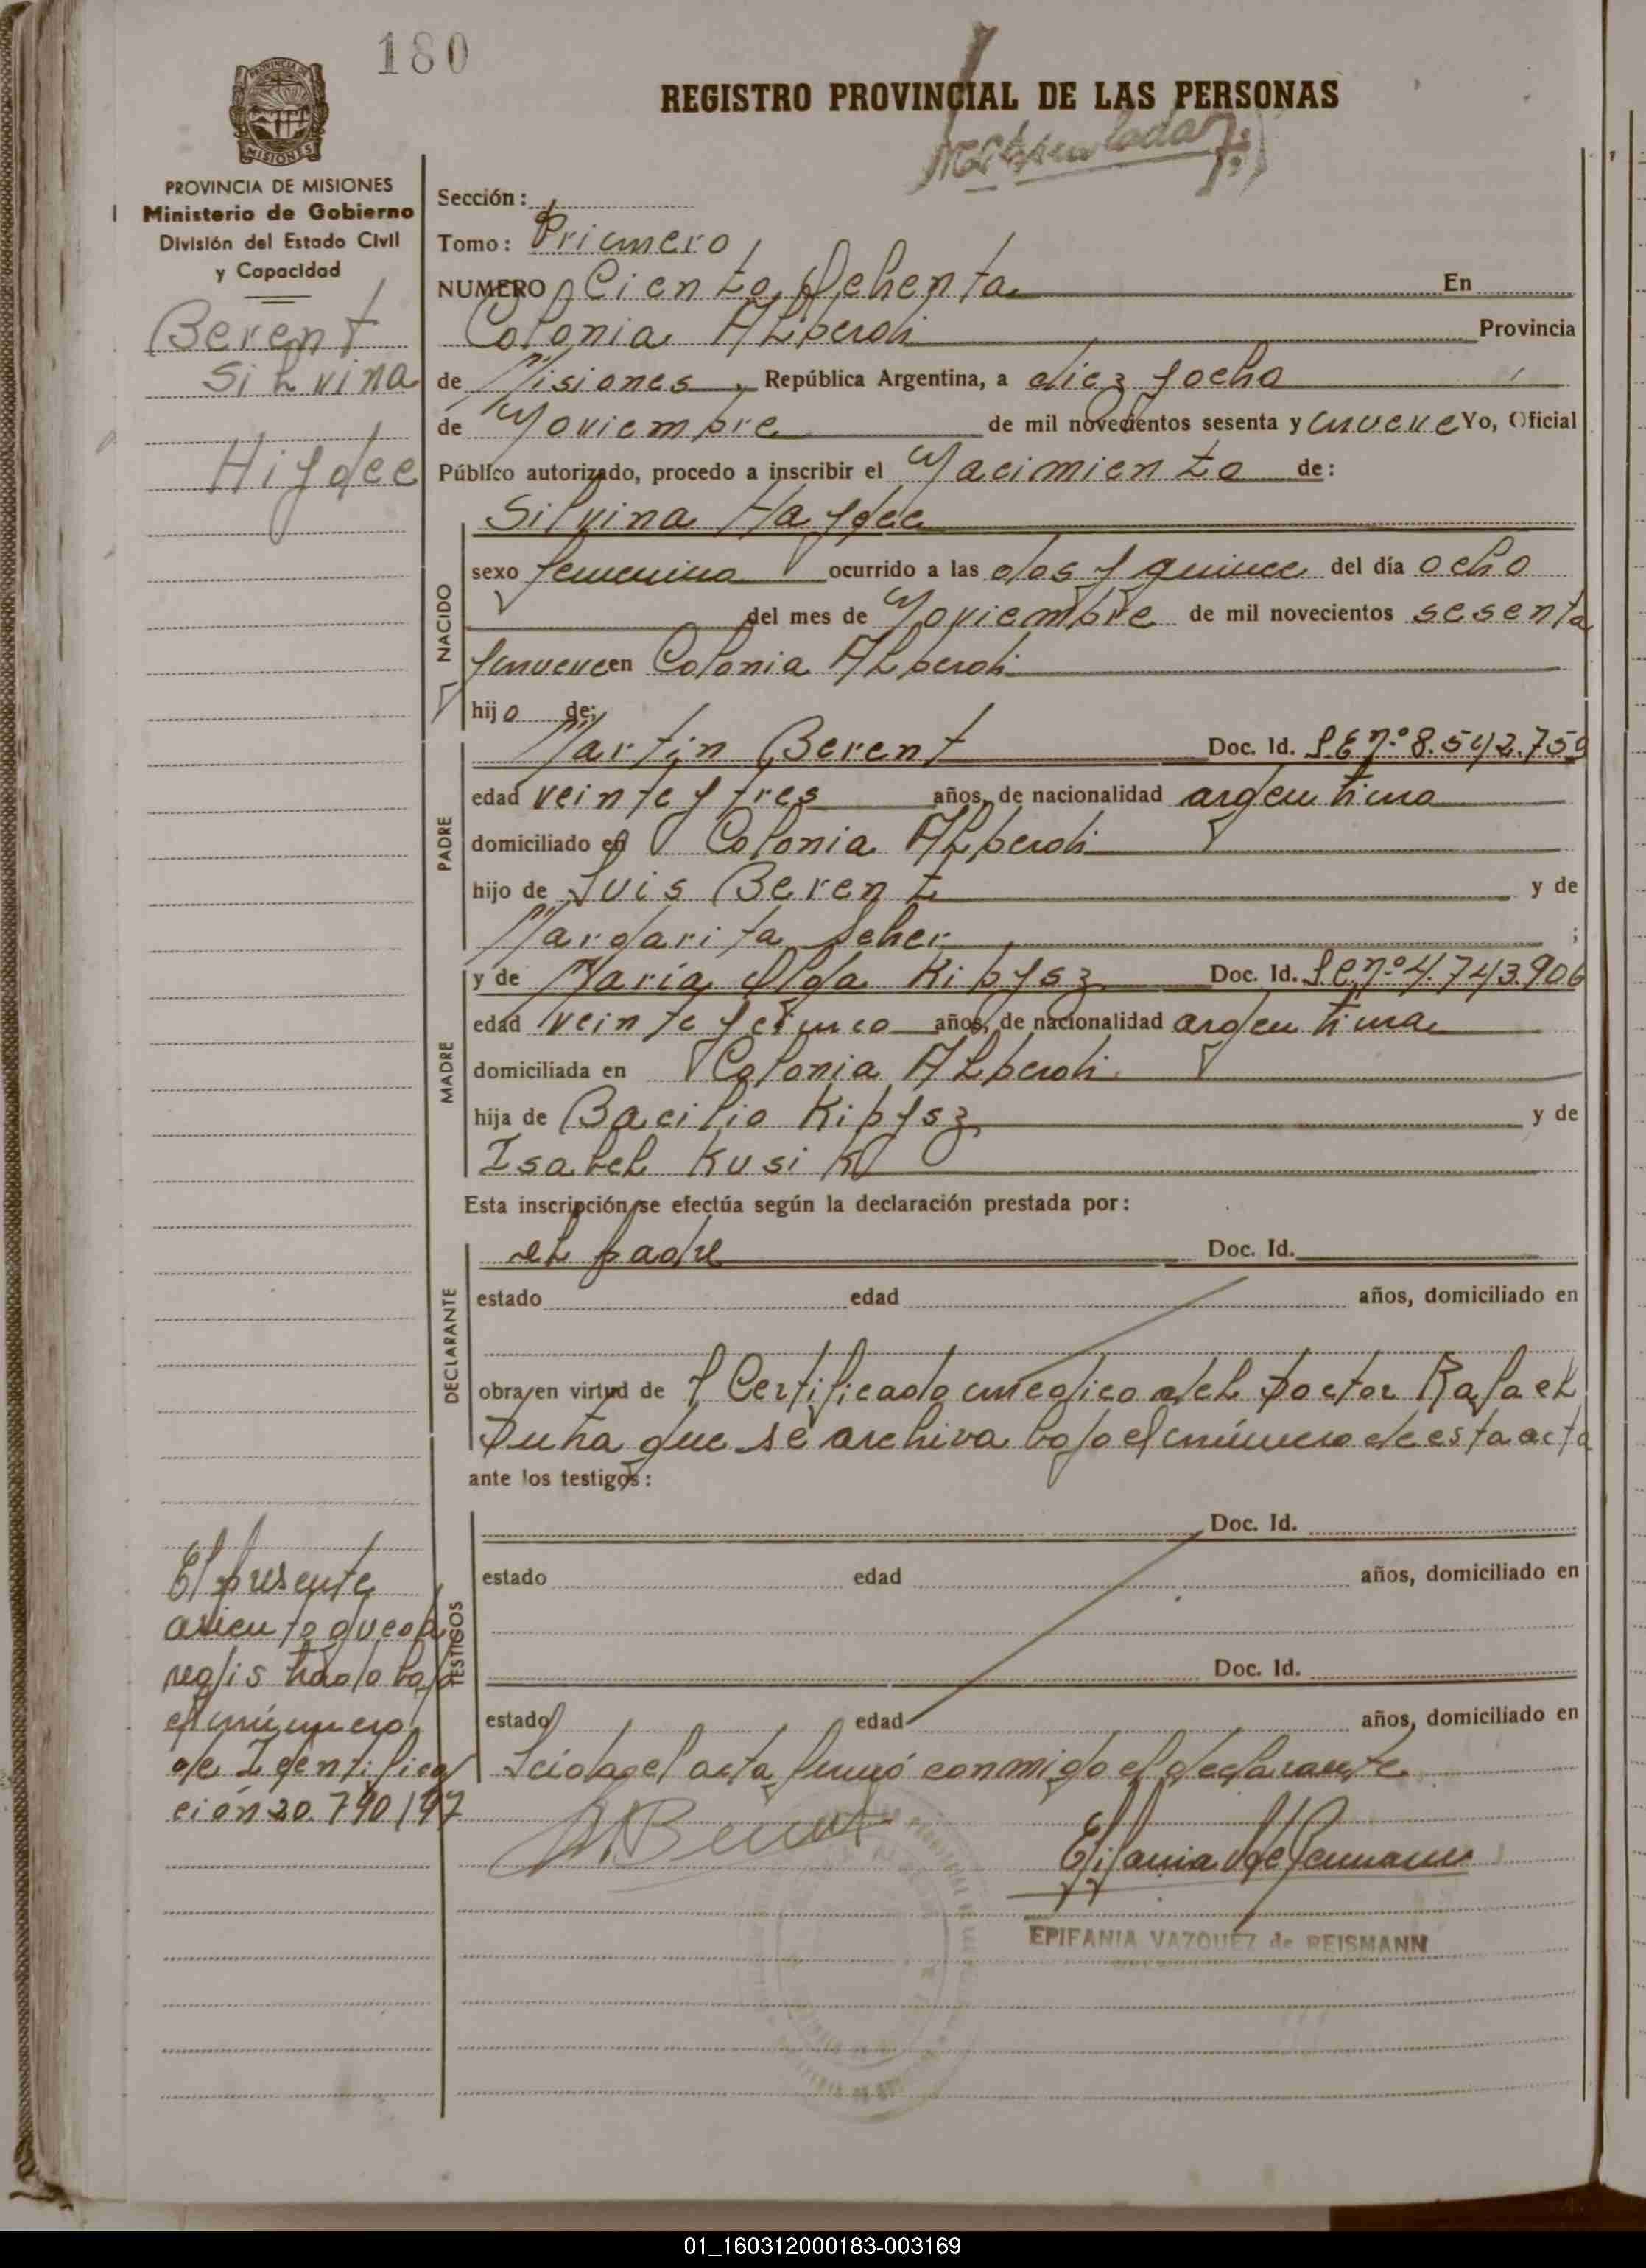 180
REGISTRO PROVINCIAL DE LAS PERSONAS
PROVINCIA DE MISIONES
Ministerio de Gobierno
División del Estado Civil
y Capacidad
Berent
Silvina
Haydee
Sección:
Tomo: Primero
NUMERO Ciento Ochenta En
Colonia Alberdi Provincia
de Misiones, República Argentina, a diez y ocho
de Noviembre de mil novecientos sesenta y nueve Yo, Oficial
Público autorizado, procedo a inscribir el Nacimiento de:
Silvina Haydee
NACIDO
sexo femenino ocurrido a las dos y quince del día ocho
del mes de Noviembre de mil novecientos sesenta
y nueve en Colonia Alberdi
hijo de:
PADRE
Martin Berent Doc. Id. L.E nº 8.542.759
edad veinte y tres años, de nacionalidad argentina
domiciliado en Colonia Alberdi
hijo de Luis Berent y de
Margarita Scher;
MADRE
y de María Olga Kipysz Doc. Id. L.C. nº 4.743.906
edad veinte y cinco años, de nacionalidad argentina
domiciliada en Colonia Alberdi
hija de Bacilio Kipysz y de
Isabel Kusik
Esta inscripción se efectúa según la declaración prestada por:
DECLARANTE
el padre Doc. Id.
estado edad años, domiciliado en
obra en virtud de y Certificado medico del Doctor Rafael
que se archiva bajo el número de esta acta
ante los testigos:
TESTIGOS
Doc. Id.
estado edad años, domiciliado en
Doc. Id.
estado edad años, domiciliado en
Leida el acta firmó conmigo el declarante
El presente
asiento queda
registrado bajo
el número
de Identifica
ción 20.790.197
M. Berent
EPIFANIA VAZQUEZ de REISMANN
01_160312000183-003169